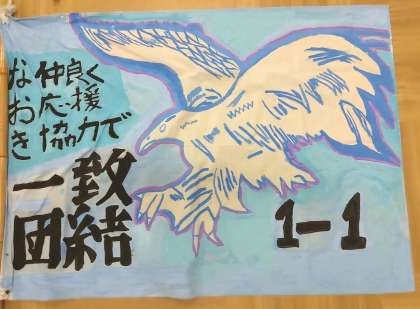 なおき
仲良く
応援
協力で
一致
団結
1-1